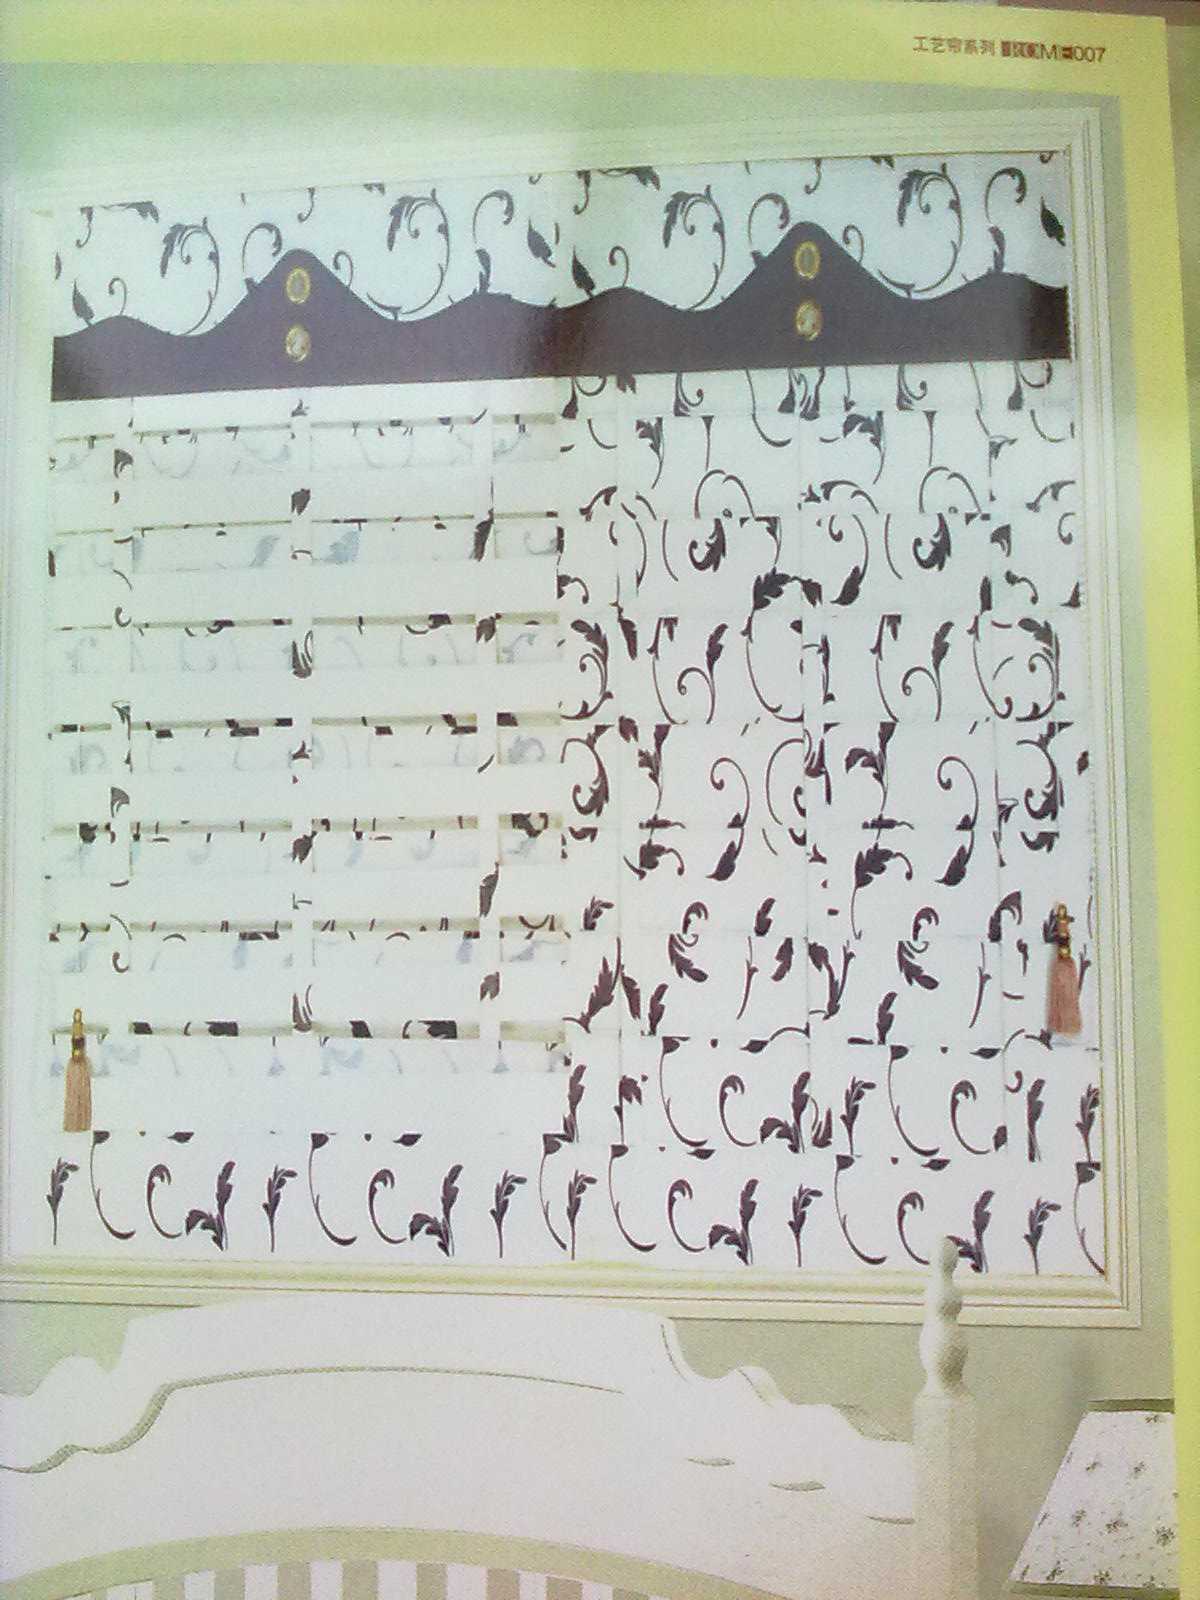 工艺帘系列 007